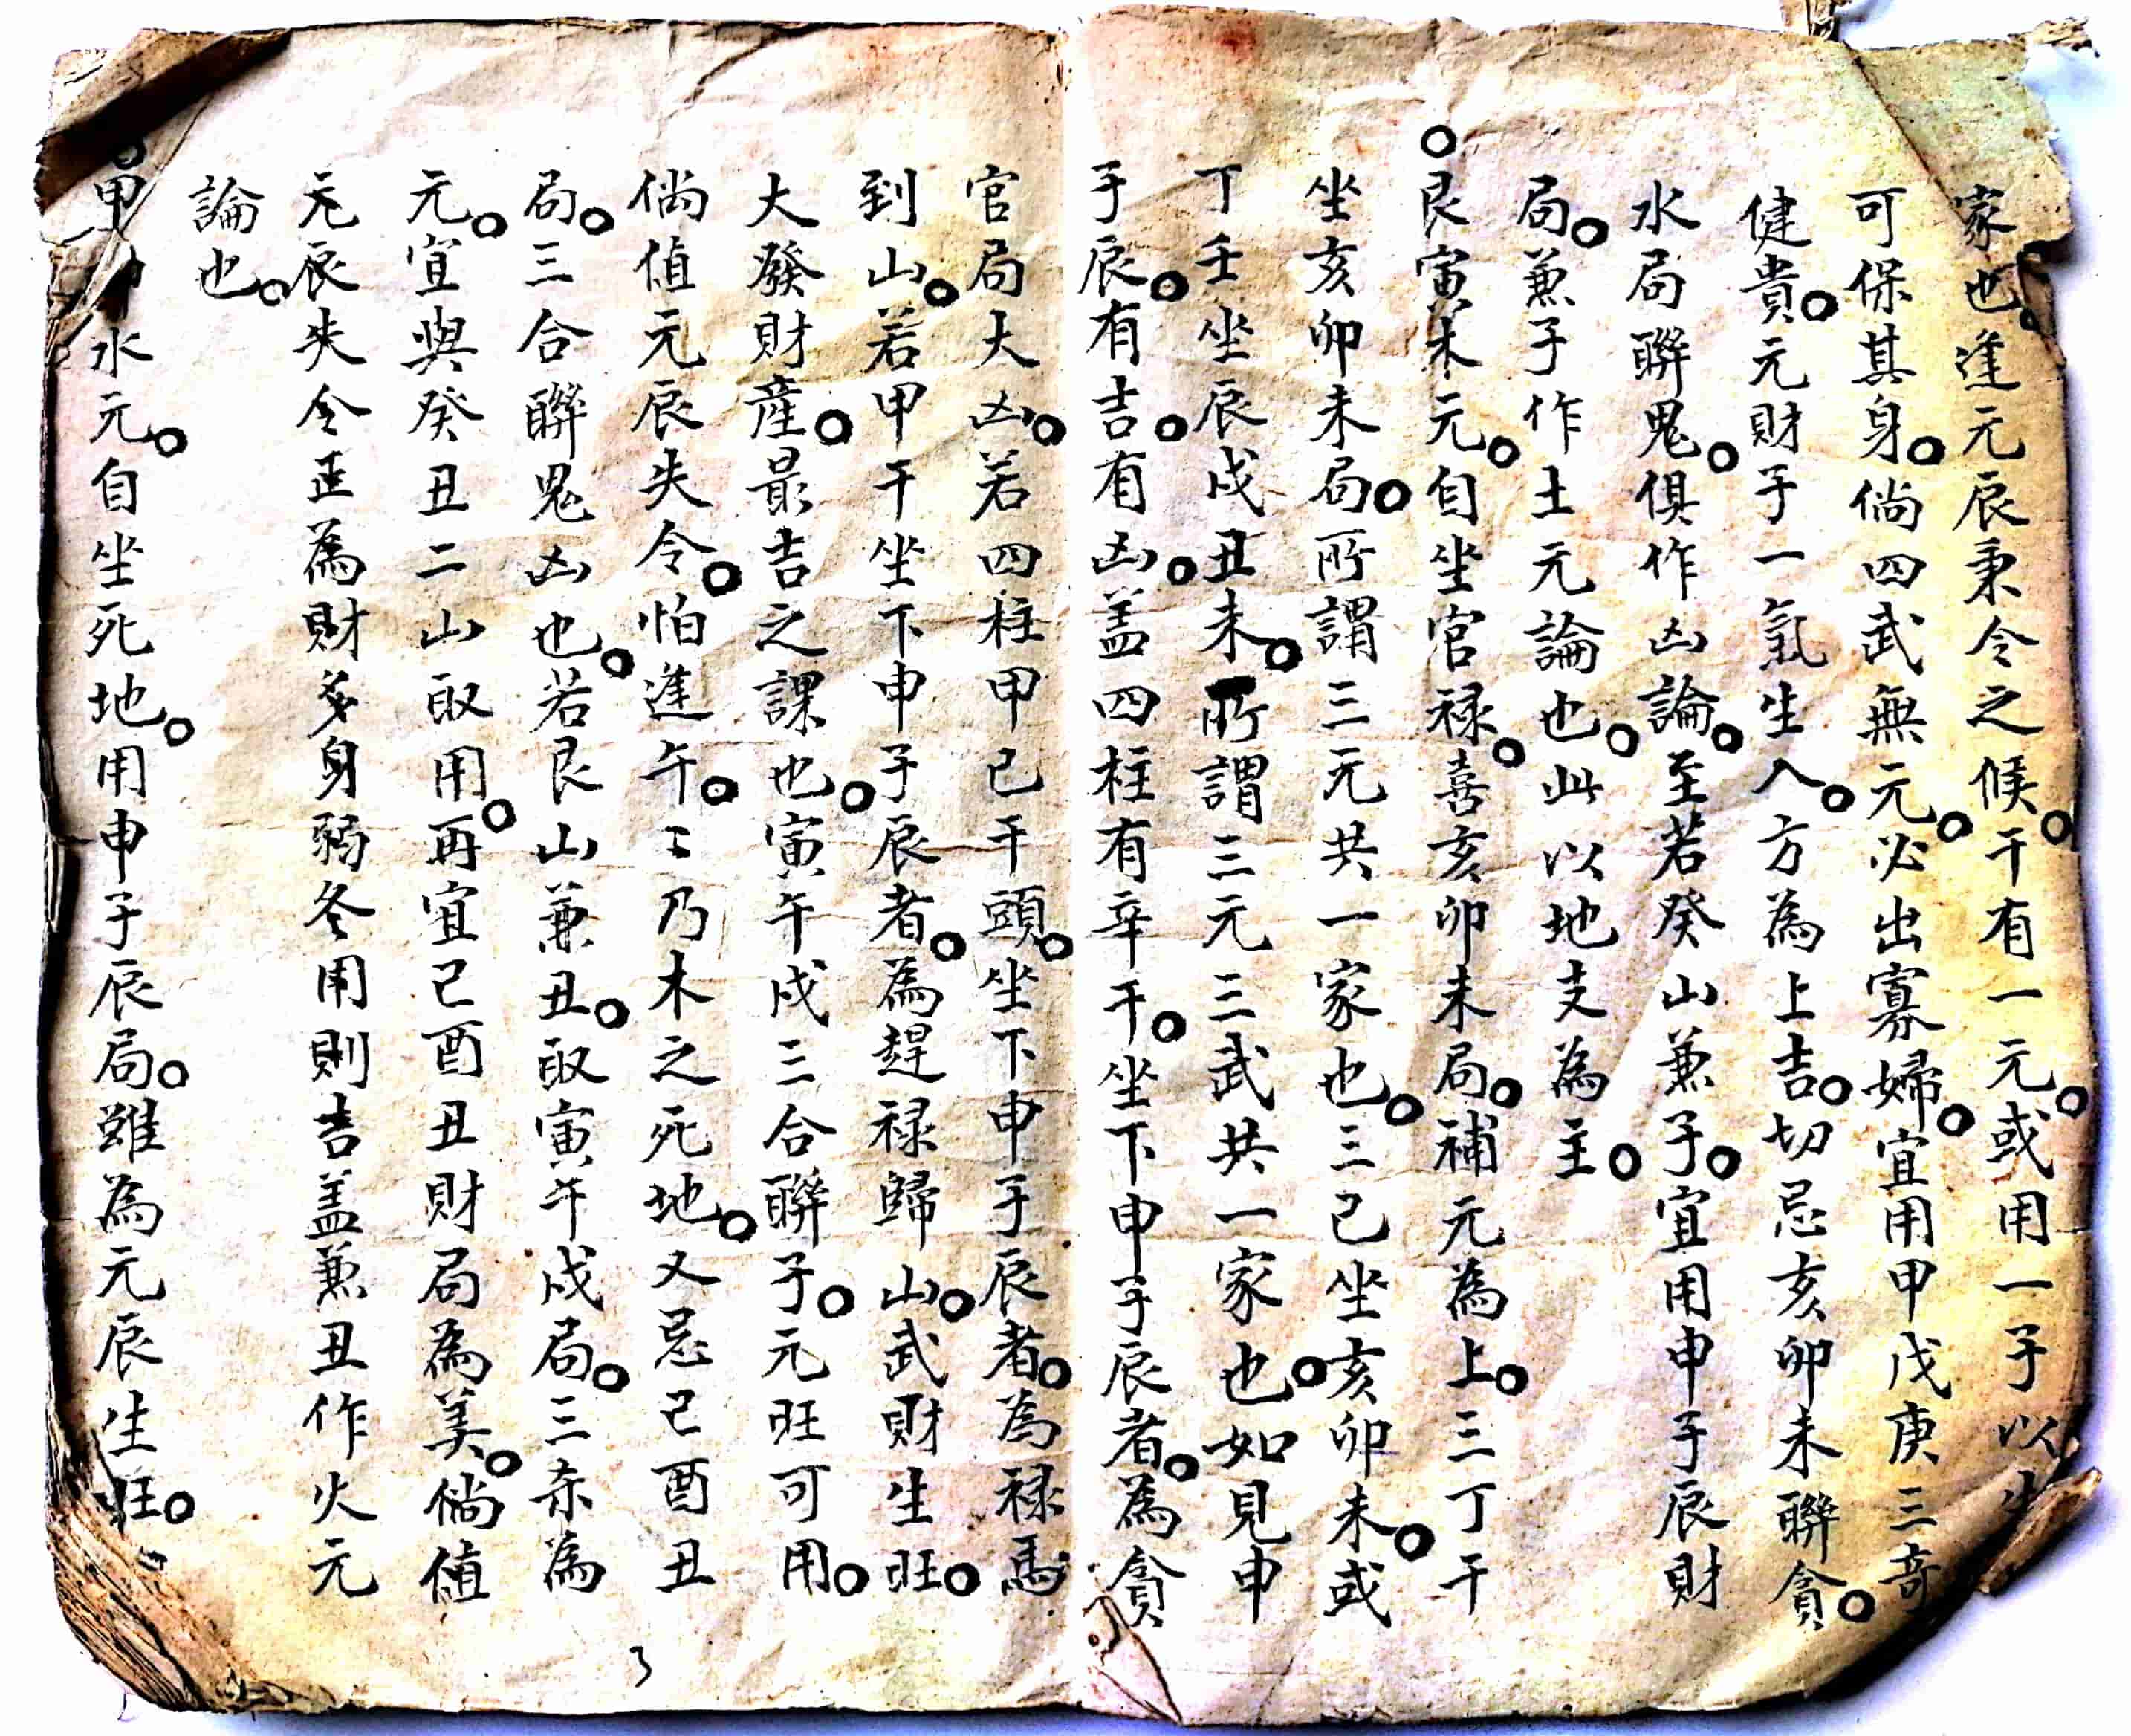 家也。逢元辰秉令之候。干有一元。或用一子以生
可保其身。倘四武無元。必出寡婦。宜用甲戊庚三奇
健貴。元財子一氣生入。方為上吉。切忌亥卯未聯貪。
水局聯鬼。俱作凶論。至若癸山兼子。宜用申子辰財
局。兼子作土元論也。此以地支為主。
。艮寅木元。自坐官祿。喜亥卯未局。補元為上。三丁干
坐亥卯未局。所謂三元共一家也。三己坐亥卯未。或
丁壬坐辰戌丑未。所謂三元三武共一家也。如見申
子辰。有吉。有凶。盖四柱有辛干。坐下申子辰者。為貪
官局大凶。若四柱甲己干頭。坐下申子辰者。為祿馬
到山。若甲干坐下申子辰者。為趕祿歸山。武財生旺。
大發財產。最吉之課也。寅午戌三合聯子。元旺可用。
倘值元辰失令。怕逢午。〻乃木之死地。又忌巳酉丑
局。三合聯鬼凶也。若艮山兼丑。取寅午戌局。三奈為
元。宜與癸丑二山取用。再宜巳酉丑財局為美。倘值
元辰失令正為財多身弱冬用則吉盖兼丑作火元
論也。
。甲卯水元。自坐死地。用申子辰局。雖為元辰生旺。
3